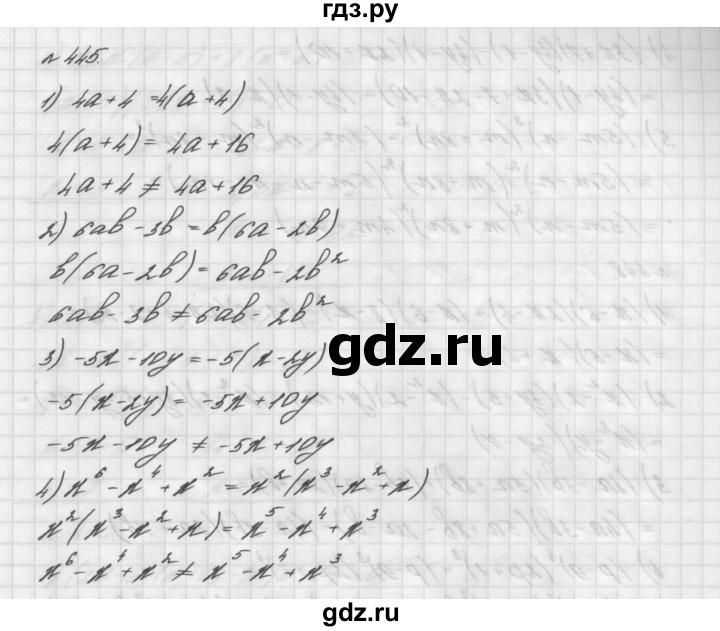 гдз.ру
№ 445.
1) 4a+4 =4(a+4)
4(a+4) = 4a+16
4a+4 ≠ 4a+16
2) 6ab -3b =b(6a-2b)
b(6a-2b) = 6ab-2b²
6ab- 3b ≠ 6ab- 2b²
3) -5x -10y =-5(x-2y)
gdz.ru
-5(x-2y) = -5x+10y
-5x-10y ≠ -5x+10y
4) x⁶ -x⁴ +x² =x²(x³-x²+x)
x²(x³-x²+x)= x⁵-x⁴+x³
x⁶-x⁴+x² ≠ x⁵-x⁴+x³
gdz.ru